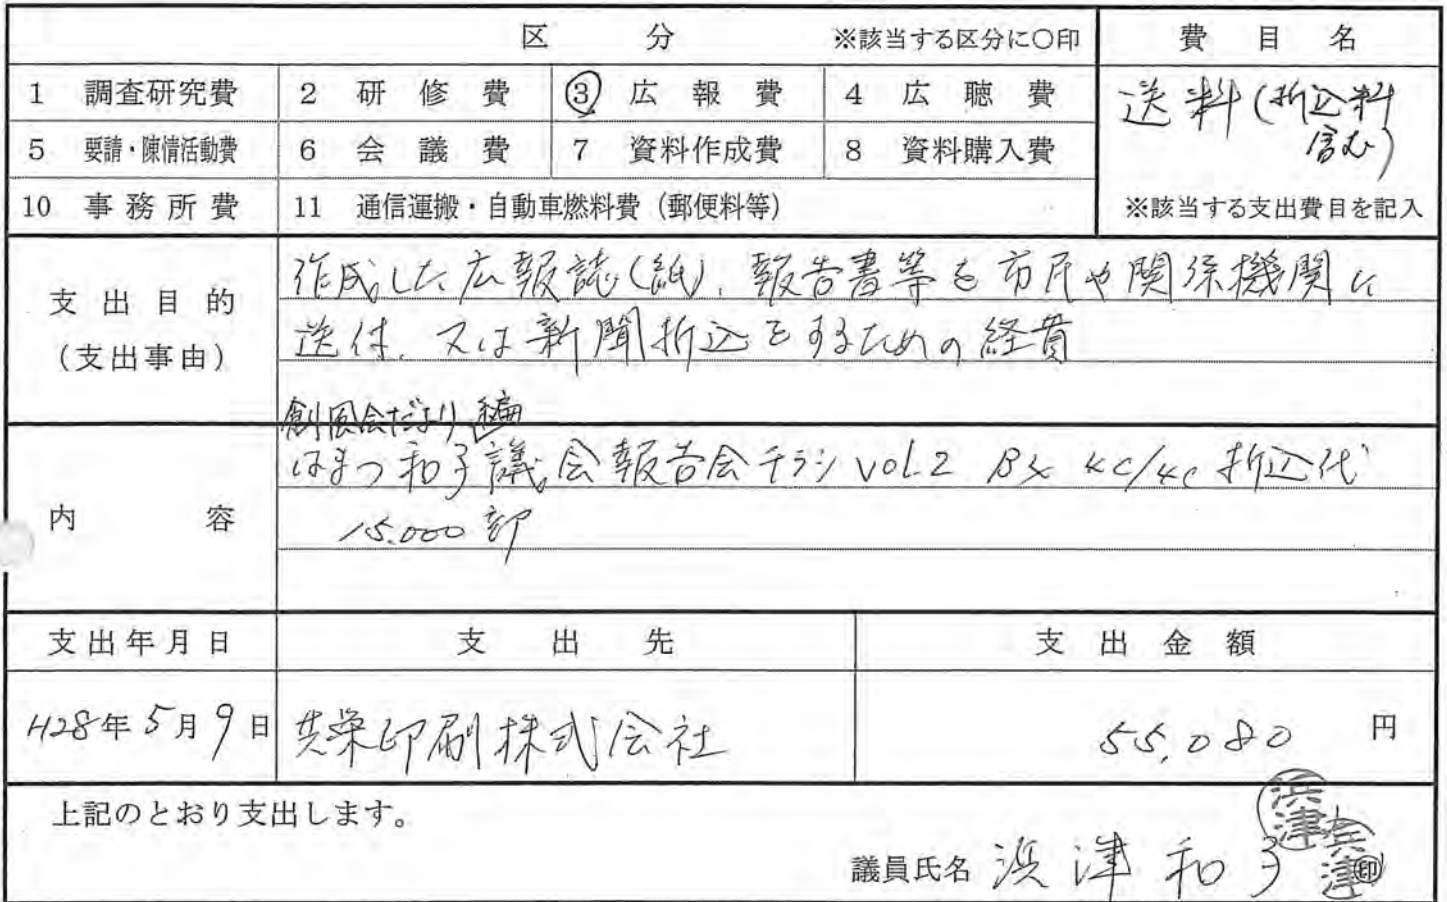 区 分 ※該当する区分に〇印 費 目 名
1 調査研究費 2 研 修 費 ③ 広 報 費 4 広 聴 費
送料(折込料
含む)
5 要請・陳情活動費 6 会 議 費 7 資料作成費 8 資料購入費
10 事 務 所 費 11 通信運搬・自動車燃料費(郵便料等) ※該当する支出費目を記入
支 出 目 的
(支出事由)
作成した広報誌(紙)、報告書等を市民や関係機関に
送付、又は新聞折込をするための経費
内 容
創風会だより 編
はまつ和子議会報告会チラシ vol.2 B4 4c/4c 折込代
15,000部
支出年月日 支 出 先 支 出 金 額
H28年5月9日 共栄印刷株式会社 55,080 円
上記のとおり支出します。
議員氏名 浜津和子 ㊞
浜津